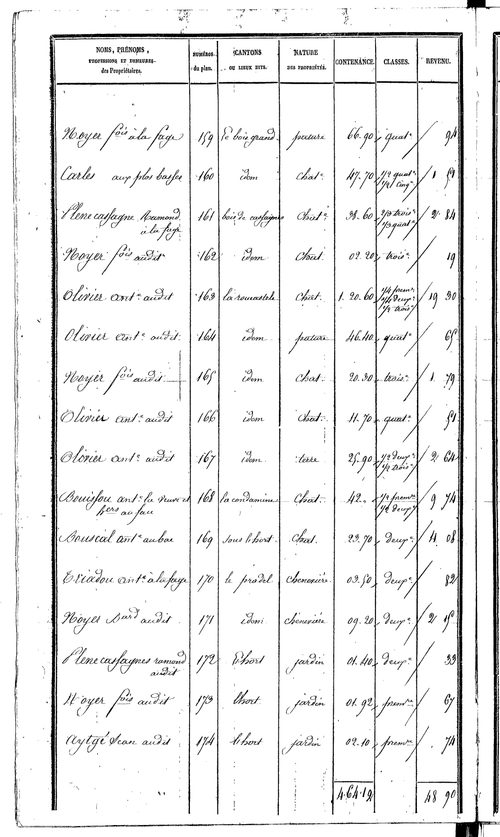 NOMS, PRÉNOMS, PROFESSIONS ET DEMEURES des Propriétaires. NUMÉROS du plan. CANTONS OU LIEUX DITS. NATURE DES PROPRIÉTÉS. CONTENANCE. CLASSES. REVENU.
Noyer fois à la fage 159 le bois grand pature 66.90 quat.e 94
Carles aux plos basses 160 idem chat. 47.70 1/2 quat.e 1/2 cinq.e 1 51
Plenecassagne Raimond à la fage 161 bois de cassagnes Chat. 38.60 2/3 trois.e 1/3 quat.e 2 84
Noyer fois audit 162 idem Chat. 02.20 trois.e 19
Olivier ant.e audit 163 la romastele Chat. 1.20.60 1/4 prem.e 1/4 deux.e 1/2 trois.e 19 30
Olivier ant.e audit 164 idem pature 46.40 quat.e 65
Noyer fois audit 165 idem chat. 20.30 trois.e 1 79
Olivier ant.e audit 166 idem Chat. 11.70 quat.e 51
Olivier ant.e audit 167 idem terre 25.90 1/2 deux.e 1/2 trois.e 2 64
ant.e la veuve et hers au fau 168 la condamine Chat. 42. 1/2 prem.e 1/2 deux.e 9 74
ant.e 169 sous lhort Chat. 23.70 deux.e 4 08
Triadou ant.e à la fage 170 le pradel chenevière 03.50 deux.e 82
Noyer audit 171 idem chenevière 09.20 deux.e 2 15
Plenecassagnes ramond audit 172 Lhort jardin 01.40 deux.e 33
Noyer fois audit 173 lhort jardin 01.92 prem.e 67
Jean audit 174 lhort jardin 02.10 prem.e 74
4.64.12 48 90